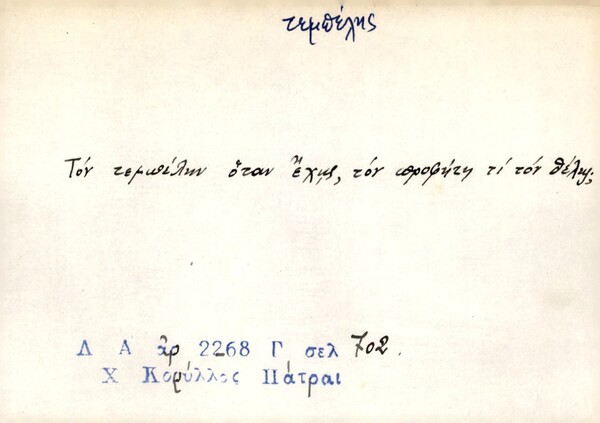 τεμπέλης
Τόν τεμπέλην ὅταν ἔχῃς, τόν προφήτη τί τόν θέλεις;
Λ Α ἀρ 2268 Γ σελ 702.
Χ Κορύλλος Πάτραι